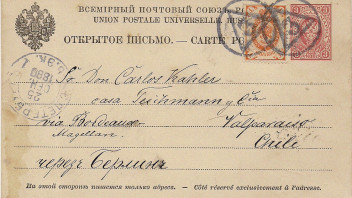 ВСЕМІРНЫЙ ПОЧТОВЫЙ СОЮЗЪ.
UNION POSTALE UNIVERSELLE.
ОТКРЫТОЕ ПИСЬМО. — CARTE
Sr. Don Carlos Kahler
casa Teichmann y Cia
via Bordeaux Valparaiso
Magellan. Chili
черезъ Берлинъ
На этой сторонѣ пишется только адресъ. — Côté réservé exclusivement à l'adresse.